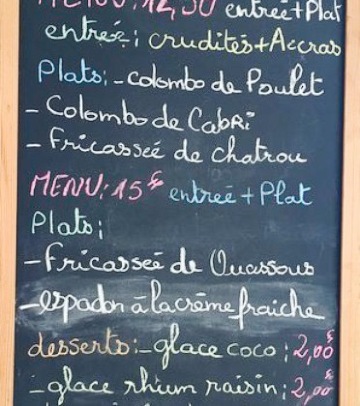 MENU: 12,50 entreé+Plat
entreé: crudités+Accras
Plats: - colombo de Poulet
- Colombo de Cabri
- Fricasseé de chatrou
MENU: 15€ entreé + Plat
Plats:
- Fricasseé de Ouassous
- espadon à la crème fraiche
desserts: - glace coco: 2,00€
- glace rhum raisin: 2,00€